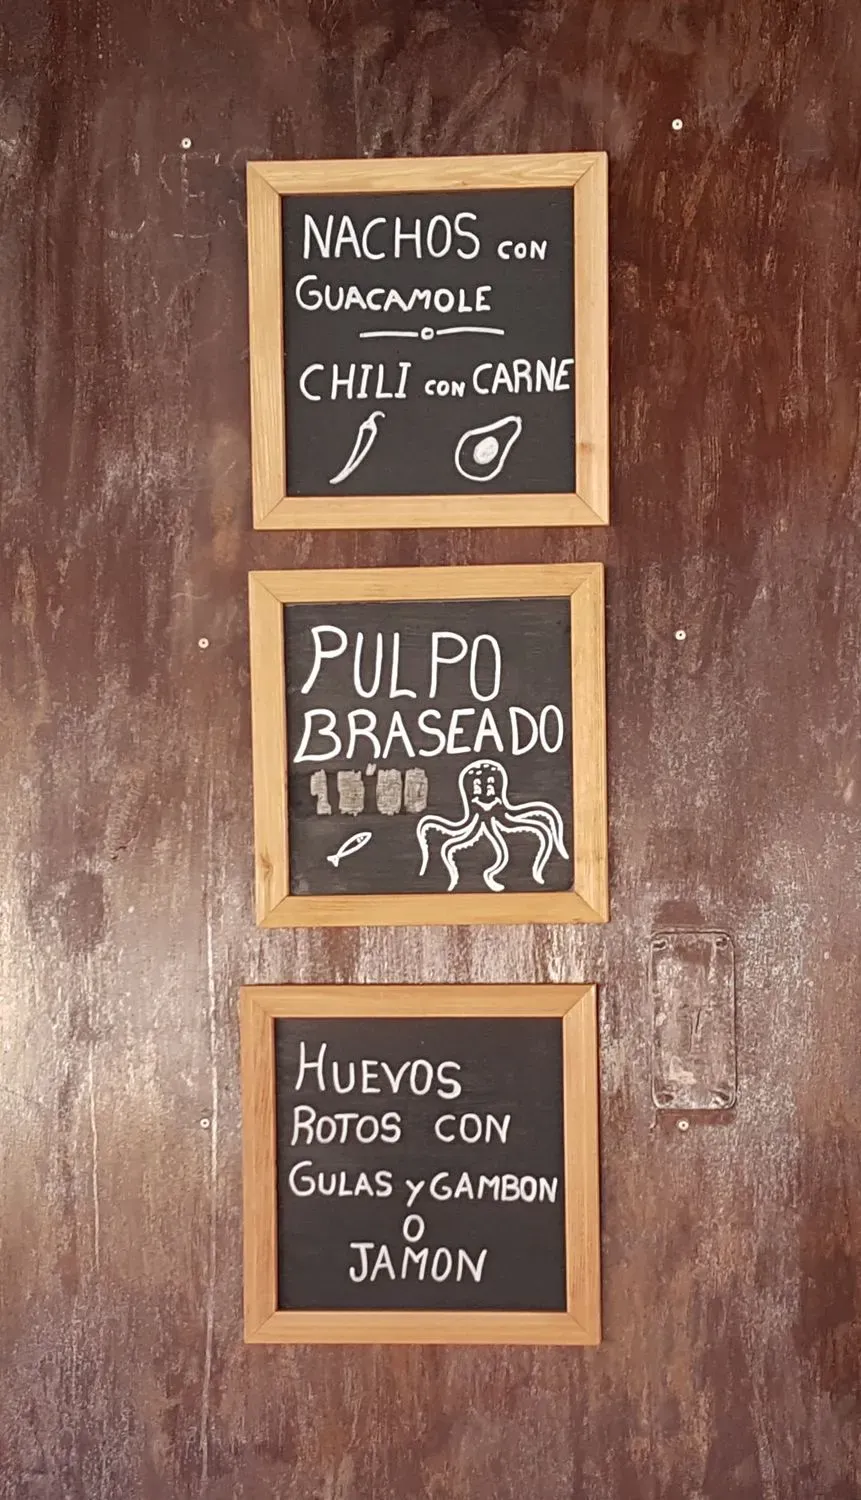 NACHOS CON
GUACAMOLE
CHILI CON CARNE
PULPO
BRASEADO
HUEVOS
ROTOS CON
GULAS Y GAMBON
O
JAMON